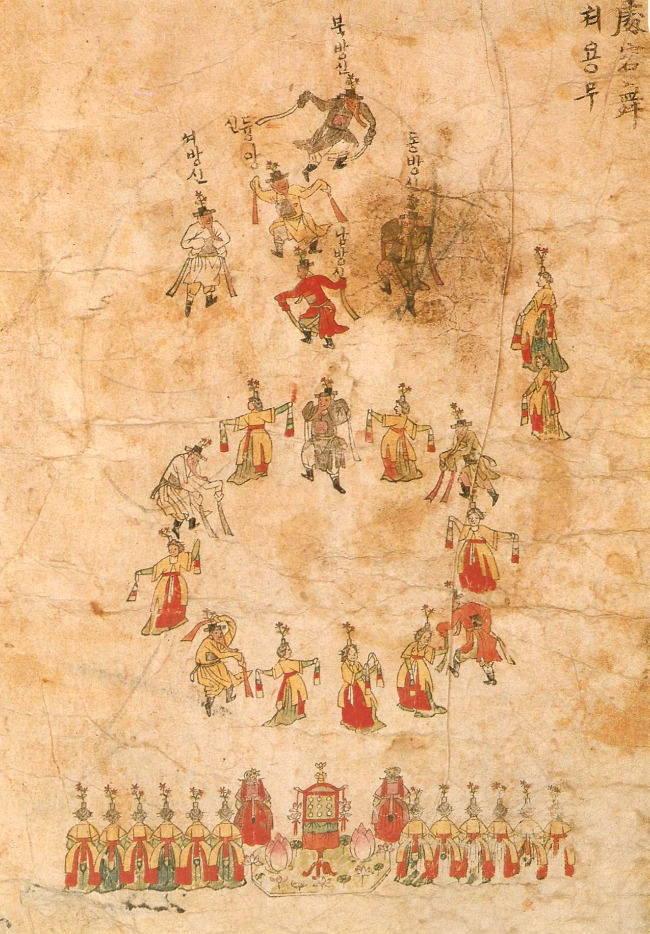 處容舞
처용무
북방신
동방신
듕앙신
남방신
셔방신